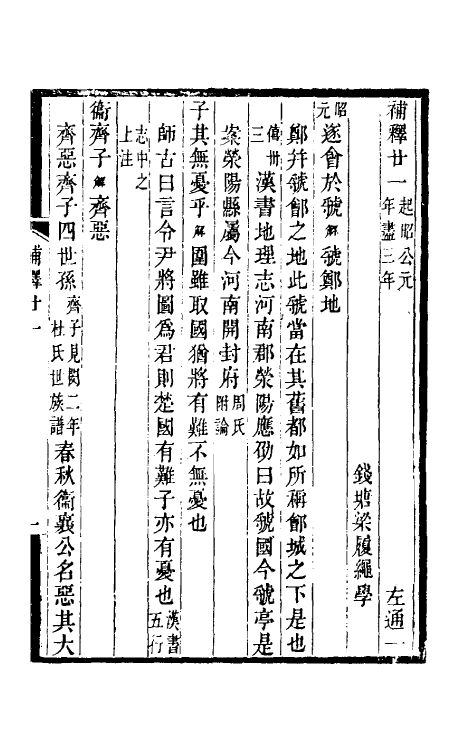 補釋廿一起昭公元年盡三年 左通一
錢塘梁履繩學
昭元遂會於虢解虢鄭地
鄭幷虢鄶之地此虢當在其舊都如所稱鄶城之下是也
傳卅三漢書地理志河南郡滎陽應劭曰故虢國今虢亭是
案滎陽縣屬今河南開封府周氏附論
子其無憂乎解圍雖取國猶將有難不無憂也
師古曰言令尹將圖爲君則楚國有難子亦有憂也漢書五行
志中之上注
衞齊子解齊惡
齊惡齊子四世孫齊子見閔二年杜氏世族譜春秋衞襄公名惡其大
補釋廿一 一